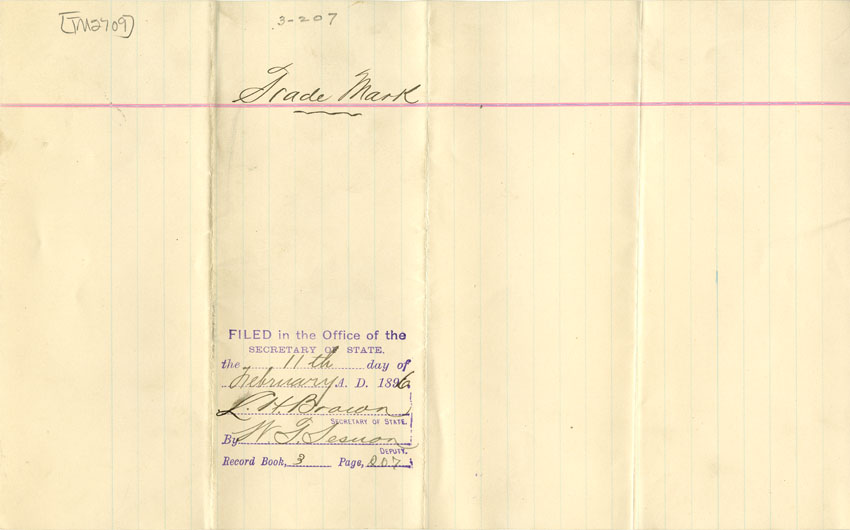 [TM2709]
3-207
Trade Mark
FILED in the Office of the
SECRETARY OF STATE.
the 11th day of
February A. D. 1896.
L. H. Brown
SECRETARY OF STATE.
By W. T. Sesnon
DEPUTY.
Record Book, 3 Page, 207